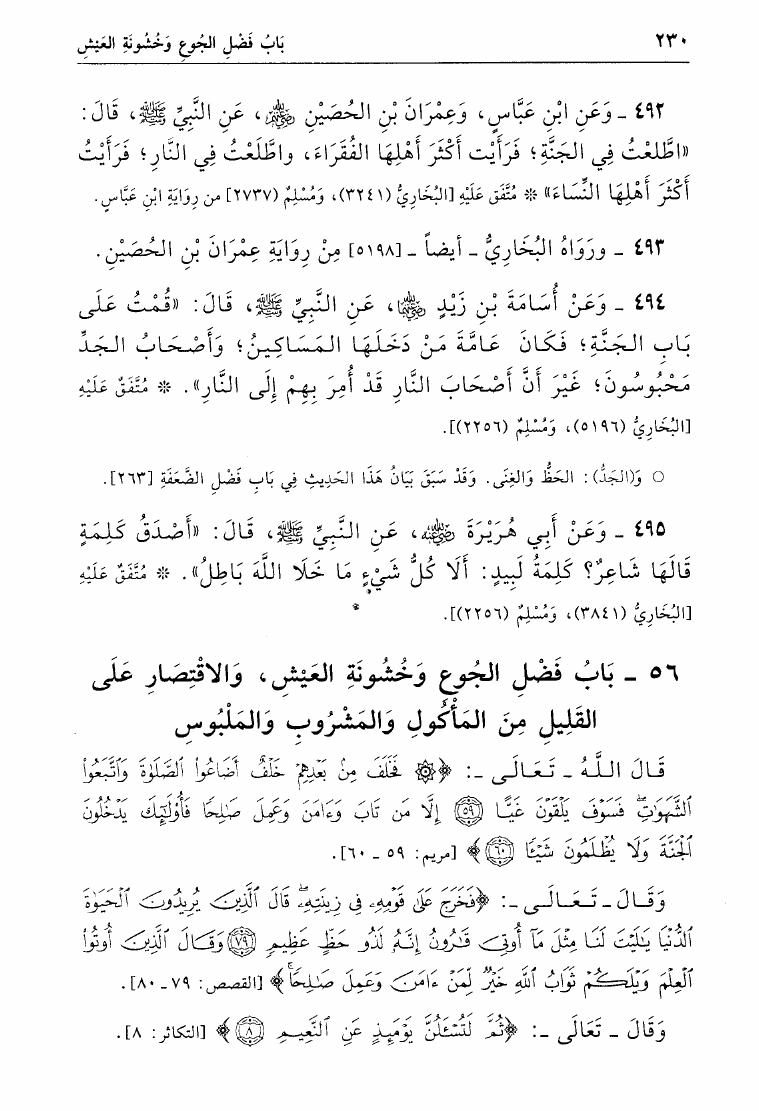 ٢٣٠ بَابُ فَضْلِ الجُوعِ وَخُشُونَةِ العَيْشِ
٤٩٢ ـ وَعَنِ ابْنِ عَبَّاسٍ، وَعِمْرَانَ بْنِ الحُصَيْنِ ﵃، عَنِ النَّبِيِّ ﷺ، قَالَ:
«اطَّلَعْتُ فِي الجَنَّةِ؛ فَرَأَيْت أَكْثَرَ أَهْلِهَا الفُقَرَاءَ، واطَّلَعْتُ فِي النَّارِ؛ فَرَأَيْتُ
أَكْثَرَ أَهْلِهَا النِّسَاءَ» * مُتَّفَق عَلَيْهِ [البُخَارِيُّ (٣٢٤١)، وَمُسْلِمٌ (٢٧٣٧) من رِوَايَةِ ابْنِ عَبَّاسٍ.
٤٩٣ ـ ورَوَاهُ البُخَارِيُّ ـ أيضاً ـ [٥١٩٨] مِنْ رِوَايَةِ عِمْرَانَ بْنِ الحُصَيْنِ.
٤٩٤ ـ وَعَنْ أُسَامَةَ بْنِ زَيْدٍ ﵄، عَنِ النَّبِيِّ ﷺ، قَالَ: «قُمْتُ عَلَى
بَابِ الجَنَّةِ؛ فَكَانَ عَامَّةَ مَنْ دَخَلَهَا المَسَاكِينُ؛ وَأَصْحَابُ الجَدِّ
مَحْبُوسُونَ؛ غَيْرَ أَنَّ أَصْحَابَ النَّارِ قَدْ أُمِرَ بِهِمْ إِلَى النَّارِ». * مُتَّفَقٌ عَلَيْهِ
[البُخَارِيُّ (٥١٩٦)، وَمُسْلِمٌ (٢٢٥٦)].
○ وَ(الجَدُّ): الحَظُّ وَالغِنَى. وَقَدْ سَبَقَ بَيَانُ هَذَا الحَدِيثِ فِي بَابِ فَضْلِ الضَّعَفَةِ [٢٦٣].
٤٩٥ ـ وَعَنْ أَبِي هُرَيْرَةَ ﵁، عَنِ النَّبِيِّ ﷺ، قَالَ: «أَصْدَقُ كَلِمَةٍ
قَالَهَا شَاعِرٌ؟ كَلِمَةُ لَبِيدٍ: أَلَا كُلُّ شَيْءٍ مَا خَلَا اللَّهَ بَاطِلُ». * مُتَّفَقٌ عَلَيْهِ
[البُخَارِيُّ (٣٨٤١)، وَمُسْلِمٌ (٢٢٥٦)].
٥٦ ـ بَابُ فَضْلِ الجُوعِ وَخُشُونَةِ العَيْشِ، وَالاقْتِصَارِ عَلَى
القَلِيلِ مِنَ المَأْكُولِ وَالمَشْرُوبِ وَالمَلْبُوسِ
قَالَ اللَّهُ ـ تَعَالَى ـ: ﴿۞ فَخَلَفَ مِنۢ بَعۡدِهِمۡ خَلۡفٌ أَضَاعُواْ ٱلصَّلَوٰةَ وَٱتَّبَعُواْ
ٱلشَّهَوَٰتِۖ فَسَوۡفَ يَلۡقَوۡنَ غَيًّا ۝٥٩ إِلَّا مَن تَابَ وَءَامَنَ وَعَمِلَ صَٰلِحٗا فَأُوْلَٰٓئِكَ يَدۡخُلُونَ
ٱلۡجَنَّةَ وَلَا يُظۡلَمُونَ شَيۡـٔٗا ۝٦٠﴾ [مريم: ٥٩ ـ ٦٠].
وَقَالَ ـ تَعَالَى ـ: ﴿فَخَرَجَ عَلَىٰ قَوۡمِهِۦ فِي زِينَتِهِۦۖ قَالَ ٱلَّذِينَ يُرِيدُونَ ٱلۡحَيَوٰةَ
ٱلدُّنۡيَا يَٰلَيۡتَ لَنَا مِثۡلَ مَآ أُوتِيَ قَٰرُونُ إِنَّهُۥ لَذُو حَظٍّ عَظِيمٖ ۝٧٩ وَقَالَ ٱلَّذِينَ أُوتُواْ
ٱلۡعِلۡمَ وَيۡلَكُمۡ ثَوَابُ ٱللَّهِ خَيۡرٞ لِّمَنۡ ءَامَنَ وَعَمِلَ صَٰلِحٗاۚ﴾ [القصص: ٧٩ ـ ٨٠].
وَقَالَ ـ تَعَالَى ـ: ﴿ثُمَّ لَتُسۡـَٔلُنَّ يَوۡمَئِذٍ عَنِ ٱلنَّعِيمِ ۝٨﴾ [التكاثر: ٨].